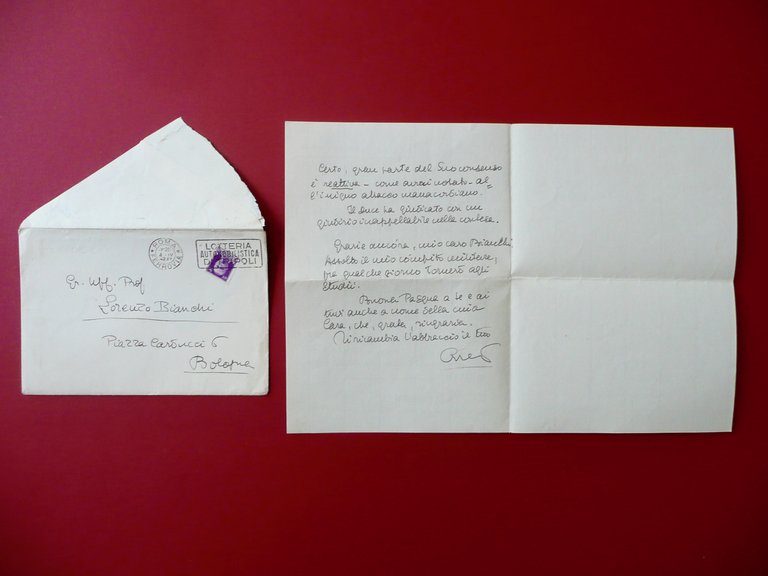 ROMA
FERROVIA
LOTTERIA
AUTOMOBILISTICA
DI TRIPOLI
Gr. Uff. Prof
Lorenzo Bianchi
Piazza Carducci 6
Bologna
Certo, gran parte del Suo consenso
è reattiva - come avrai notato - al=
l'iniquo attacco manacordiano.
Il duce ha giudicato con un
giudizio inappellabile nella contesa.
Grazie ancora, mio caro Bianchi
Assolto il mio compito
fra qualche giorno tornerò agli
studii.
Buona Pasqua a te e ai
tuoi anche a nome della mia
Cara, che, grata, ringrazia.
Ti ricambia l'abbraccio il tuo